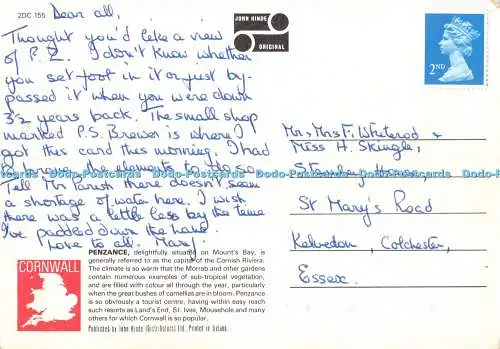 2DC 155
Dear all,
Thought you'd like a view
of P.Z. I don't know whether
you set foot in it or just by-
passed it when you were down
3½ years back. The small shop
marked P.S. Brewer is where I
got this card this morning. I had
to brave the elements to do so.
Tell Mr Parish there doesn't seem
a shortage of water here. I wish
there was a little less by the time
I've paddled down the
Love to all. Mary.
JOHN HINDE
ORIGINAL
2ND
Mr, Mrs F. Whiterod &
Miss H. Skingle,
House,
St Mary's Road
Kelvedon, Colchester,
Essex.
Dodo-Postcards Dodo-Postcards Dodo-Postcards Dodo-Postcards
CORNWALL
PENZANCE, delightfully situated on Mount's Bay, is
generally referred to as the capital of the Cornish Riviera.
The climate is so warm that the Morrab and other gardens
contain numerous examples of sub-tropical vegetation,
and are filled with colour all through the year, particularly
when the great bushes of camellias are in bloom. Penzance
is so obviously a tourist centre, having within easy reach
such resorts as Land's End, St. Ives, Mousehole and many
others for which Cornwall is so popular.
Published by John Hinde (Distributors) Ltd. Printed in Ireland.